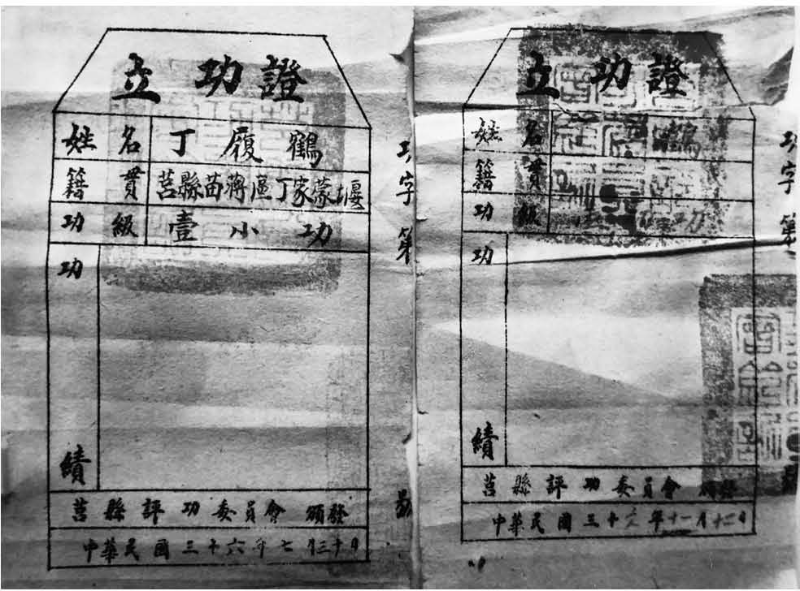 立功證
姓名 丁履鶴
籍貫 莒縣苗蔣區丁家蒙堰
功級 壹小功
功績
莒縣評功委員會頒發
中華民國三十六年七月三十日
功字第
號
立功證
姓名 鶴
籍貫
功級 功
功績
莒縣評功委員會頒發
中華民國三十六年十一月十二日
功字第
號